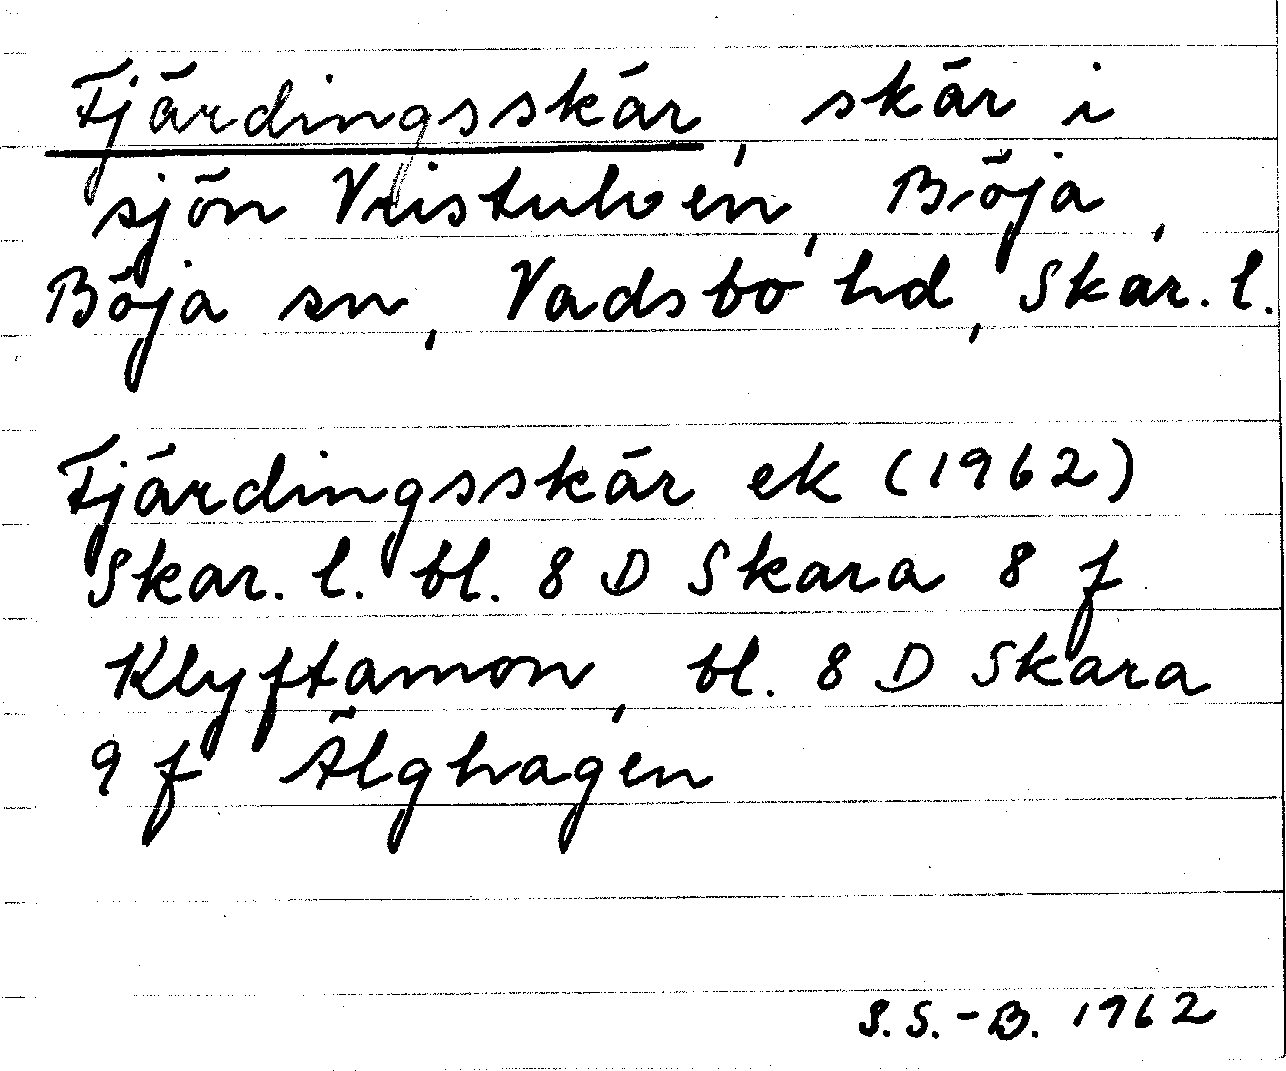 Fjärdingsskär, skär i
sjön Vristulven, Böja,
Böja sn, Vadsbo hd, Skar. l.
Fjärdingsskär ek (1962)
Skar. l. bl. 8 D Skara 8 f
Klyftamon, bl. 8 D Skara
9 f Älghagen
S. S.-B. 1962